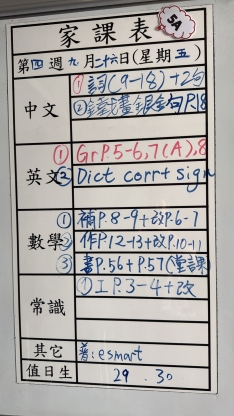 家課表
5A
第四週九月二十六日(星期五)
中文
①詞(9-18)+2句
②鐵畫銀金句P.18
英文
① Gr P.5-6, 7(A), 8
② Dict corr + sign
數學
① 補P.8-9+改P.6-7
② 作P.12-13+改P.10-11
③ 書P.56+P.57(堂課)
常識
① I P.3-4+改
其它
普: esmart
值日生
29 . 30